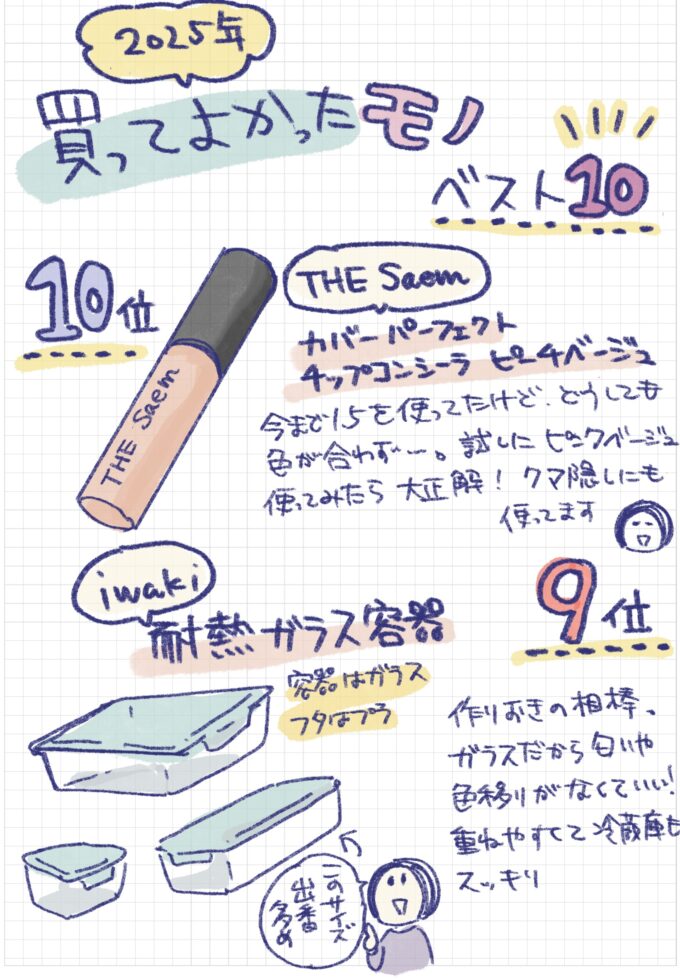 2025年
買ってよかったモノ
ベスト10
10位
THE Saem
THE Saem
カバーパーフェクト
チップコンシーラ ピーチベージュ
今まで1.5を使ってたけど、どうしても
色が合わず…。試したピンクベージュ
使ってみたら大正解！クマ隠しにも
使ってます
iwaki
耐熱ガラス容器
9位
容器はガラス
フタはプラ
作りおきの相棒、
ガラスだから匂いや
色移りがなくていい！
重ねやすくて冷蔵庫も
スッキリ
このサイズ
出番
多め